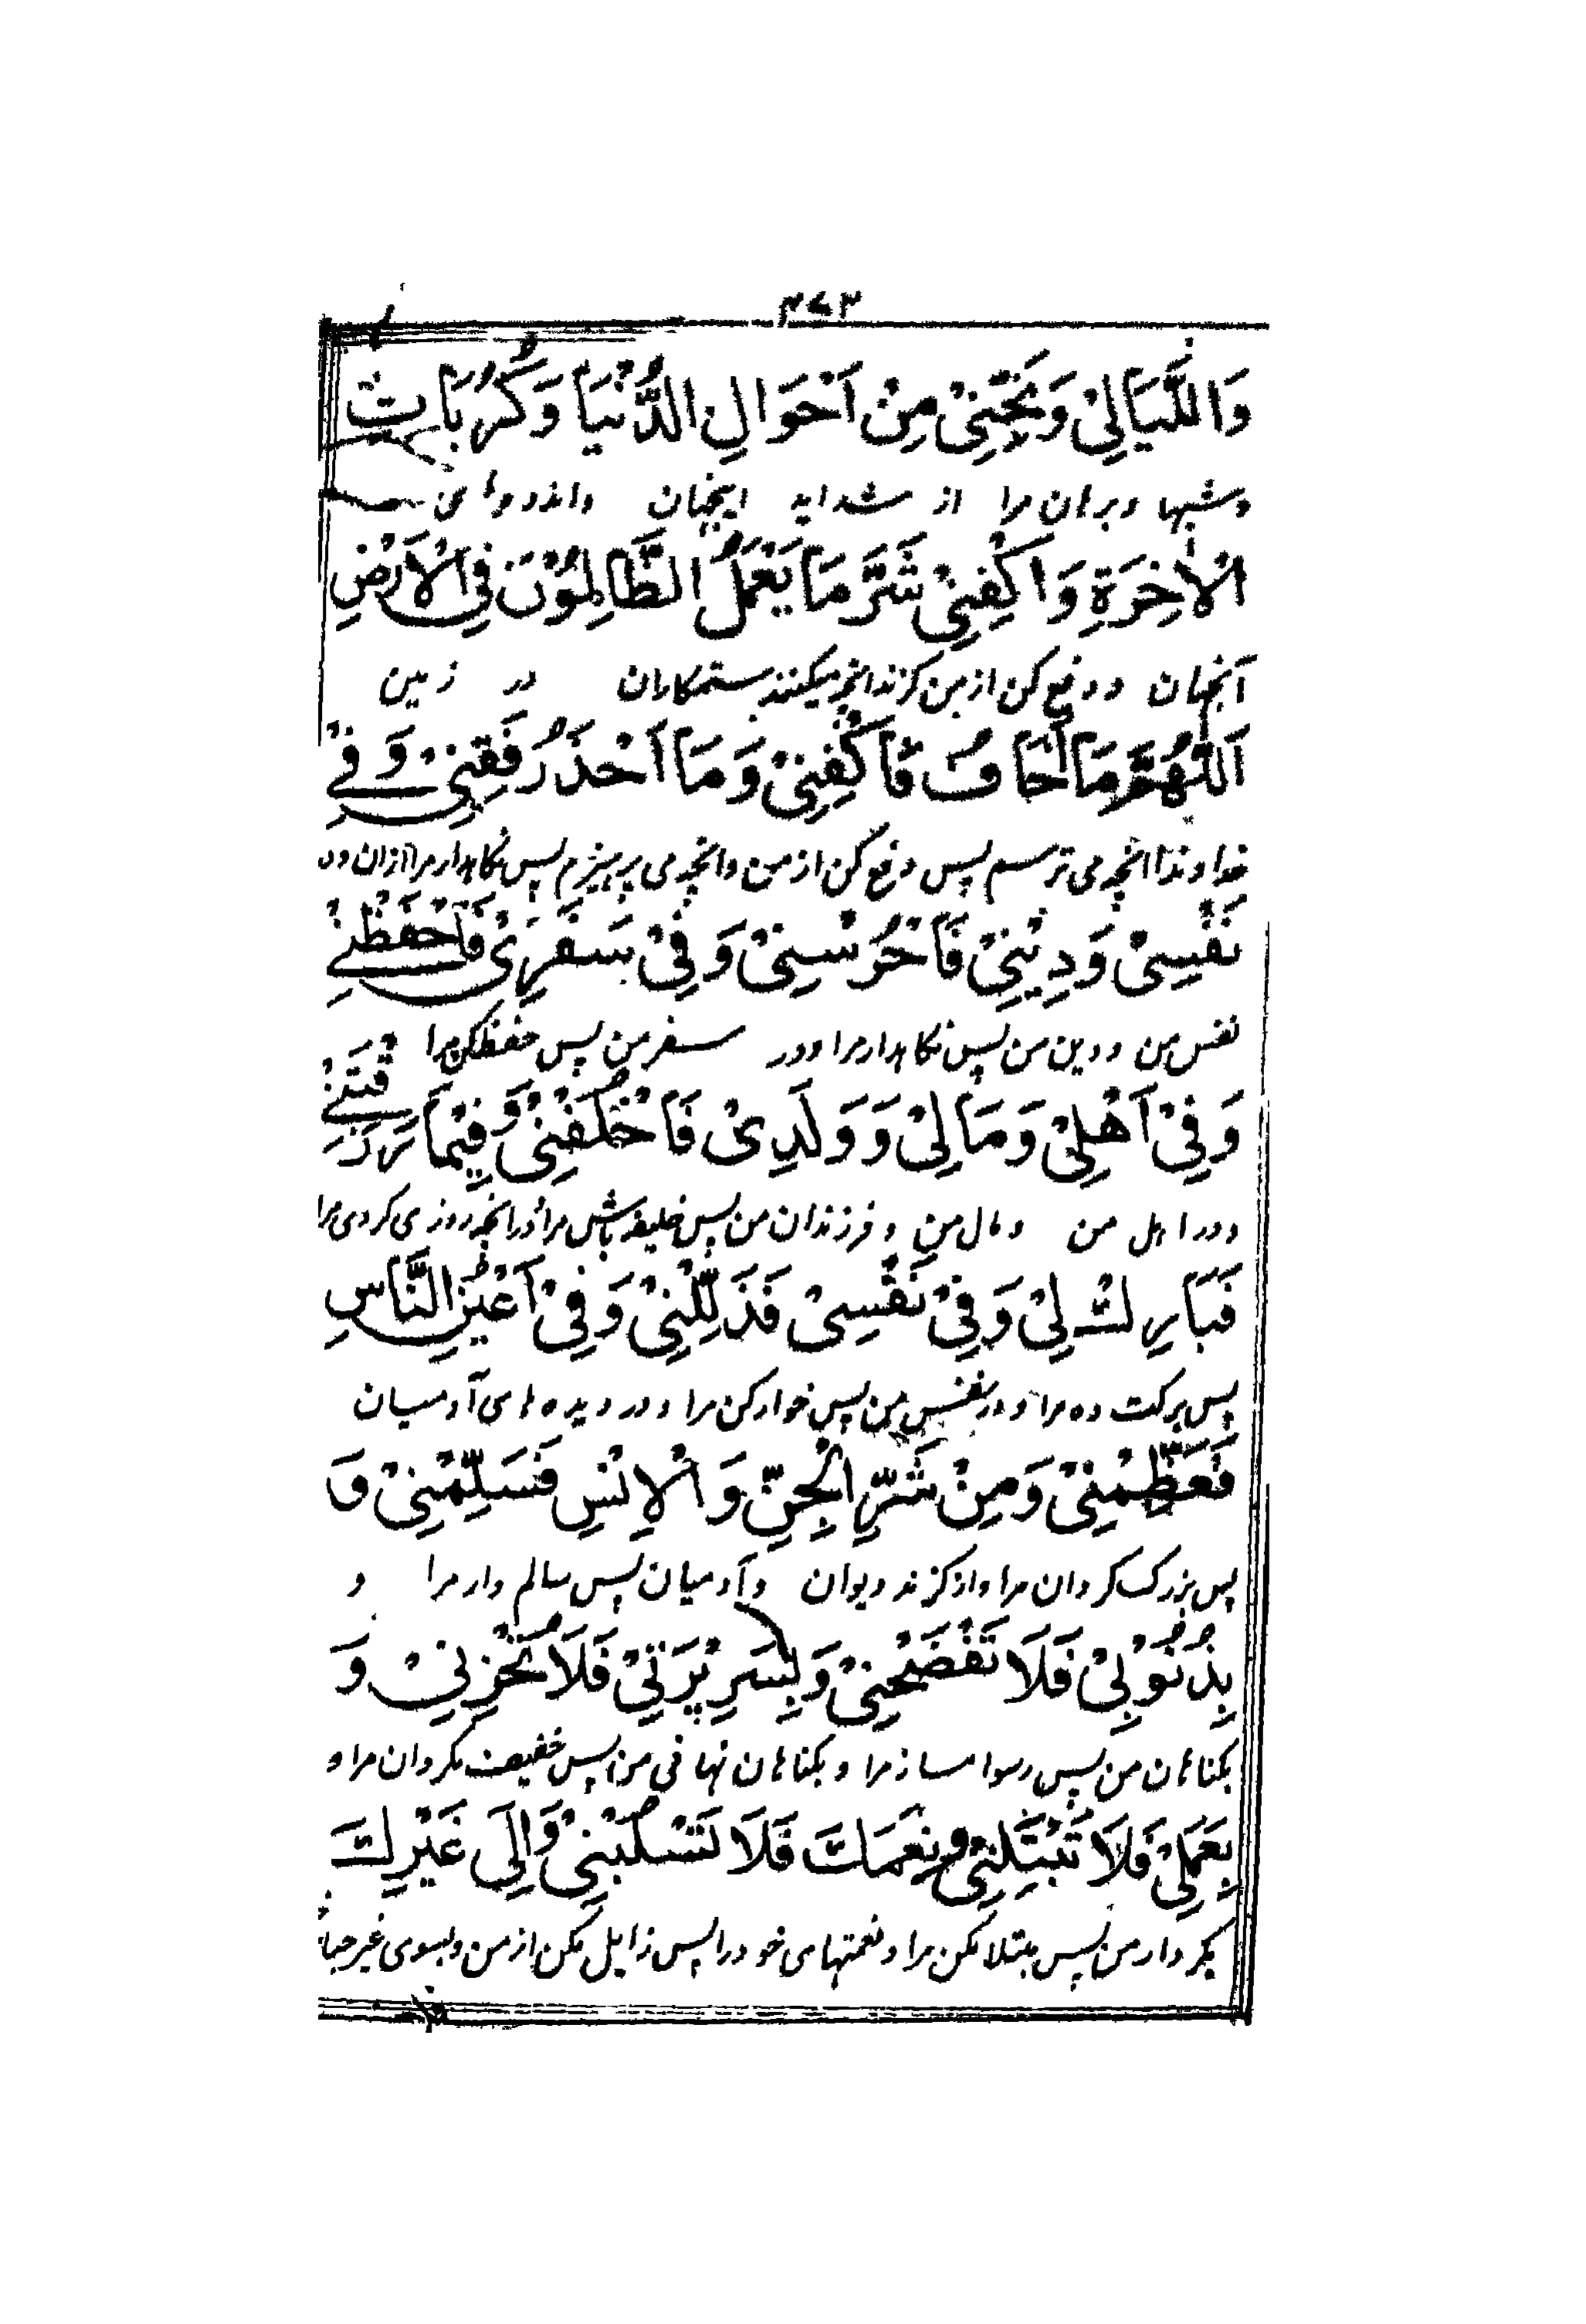 ۳۷۳
وَاللَّيَالِيْ وَنَجِّنِيْ مِنْ اَحْوَالِ الدُّنْيَا وَكُرُبَاتِ
وشبها وبرهان مرا از شدايد اينجهان واندوههاى
الْاٰخِرَةِ وَاكْفِنِيْ شَرَّ مَا يَعْمَلُ الظَّالِمُوْنَ فِي الْاَرْضِ
آنجهان ودفع كن از من كزند انچه ميكنند ستمكاران در زمين
اَللّٰهُمَّ مَا اَخَافُ فَاكْفِنِيْ وَمَا اَحْذَرُ فَقِنِيْ وَفِيْ
خداوندا انچه مى ترسم پس دفع كن از من وانچه مى پرهيزم پس نكاهدار مرا ازان ودر
نَفْسِيْ وَدِيْنِيْ فَاحْرُسْنِيْ وَفِيْ سَفَرِيْ فَاحْفَظْنِيْ
نفس من ودين من پس نكاهدار مرا ودر سفر من پس حفظ كن مرا
وَفِيْ اَهْلِيْ وَمَالِيْ وَوَلَدِيْ فَاخْلُفْنِيْ وَفِيْمَا رَزَقْتَنِيْ
ودر اهل من ومال من وفرزندان من پس خليفه باش مرا ودر انچه روزى كردى مرا
فَبَارِكْ لِيْ وَفِيْ نَفْسِيْ فَذَلِّلْنِيْ وَفِيْ اَعْيُنِ النَّاسِ
پس بركت ده مرا ودر نفس من پس خوار كن مرا ودر ديده هاى آدميان
فَعَظِّمْنِيْ وَمِنْ شَرِّ الْجِنِّ وَالْاِنْسِ فَسَلِّمْنِيْ وَ
پس بزرك كردان مرا واز كزند ديوان وآدميان پس سالم دار مرا و
بِذُنُوْبِيْ فَلَا تَفْضَحْنِيْ وَبِسَرِيْرَتِيْ فَلَا تُخْزِنِيْ وَ
بكناهان من پس رسوا مساز مرا وبكناهان نهانى من پس خفيف مكردان مرا و
بِعَمَلِيْ فَلَا تَبْتَلِنِيْ وَنِعَمَكَ فَلَا تَسْلُبْنِيْ وَاِلَى غَيْرِكَ
بكردار من پس مبتلا مكن مرا ونعمتهاى خود را پس زايل مكن از من وبسوى غير